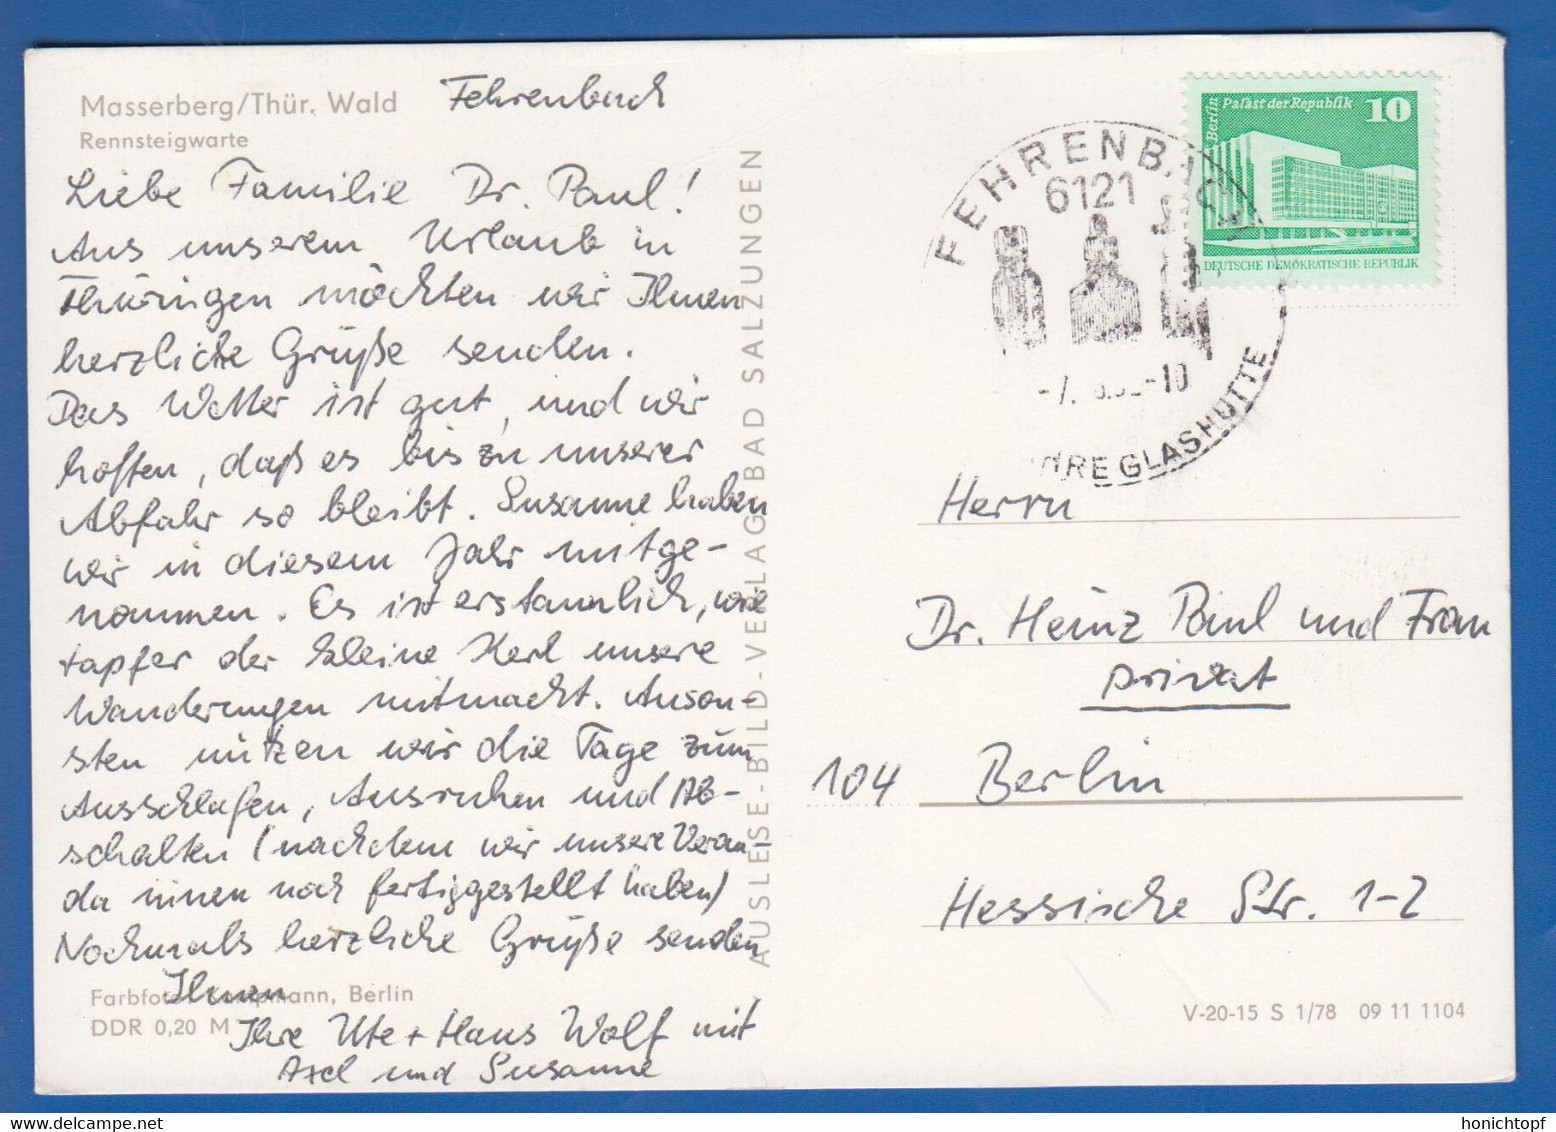 Masserberg/Thür. Wald
Rennsteigwarte
Fehrenbach
Liebe Familie Dr. Paul!
Aus unserem Urlaub in
Thüringen möchten wir Ihnen
herzliche Grüße senden.
Das Wetter ist gut, und wir
hoffen, daß es bis zu unserer
Abfahr so bleibt. Susanne haben
wir in diesem Jahr mitge-
nommen. Es ist erstaunlich, wie
tapfer der kleine Kerl unsere
Wanderungen mitmacht. Anson-
sten nützen wir die Tage zum
Ausschlafen, Ausruhen und Ab-
schalten (nachdem wir unsere Veran-
da innen noch fertiggestellt haben)
Nochmals herzliche Grüße senden
Ihnen
Ihre Ute + Hans Wolf mit
Axel und Susanne
Farbfoto: mann, Berlin
DDR 0,20 M
AUSLESE-BILD-VERLAG BAD SALZUNGEN
Berlin Palast der Republik 10
DEUTSCHE DEMOKRATISCHE REPUBLIK
FEHRENBACH
6121
-10
GLASHÜTTE
Herrn
Dr. Heinz Paul und Frau
privat
104 Berlin
Hessische Str. 1-2
V-20-15 S 1/78 09 11 1104
honichtopf